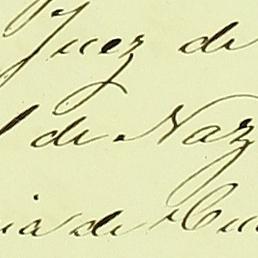 Juez de
l de Naz
ia de Cu